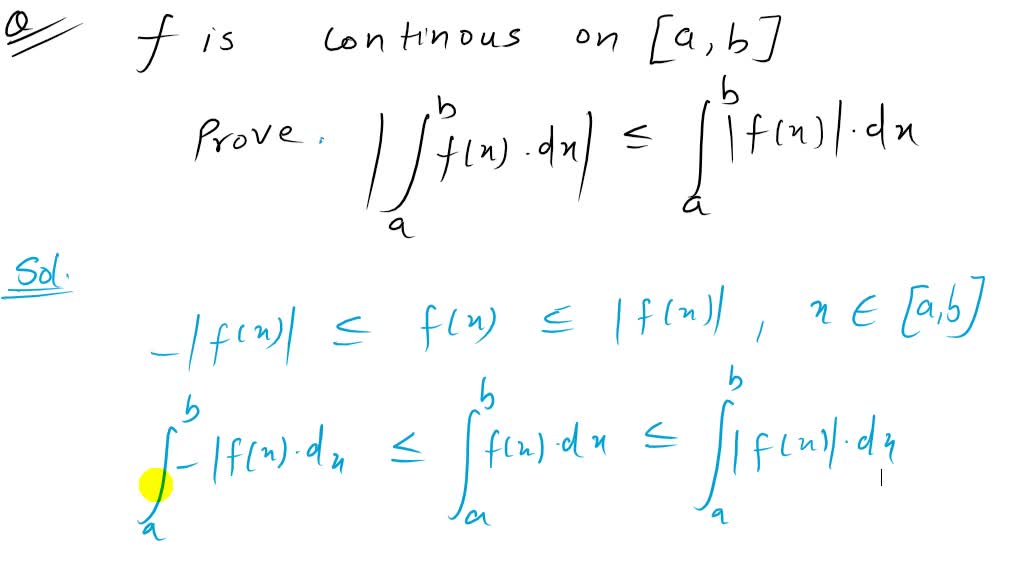 Q f is continous on [a,b]
Prove. |∫_a^b f(x).dx| ≤ ∫_a^b |f(x)|.dx
Sol.
-|f(x)| ≤ f(x) ≤ |f(x)|, x ∈ [a,b]
∫_a^b -|f(x).dx ≤ ∫_a^b f(x).dx ≤ ∫_a^b |f(x)|.dx